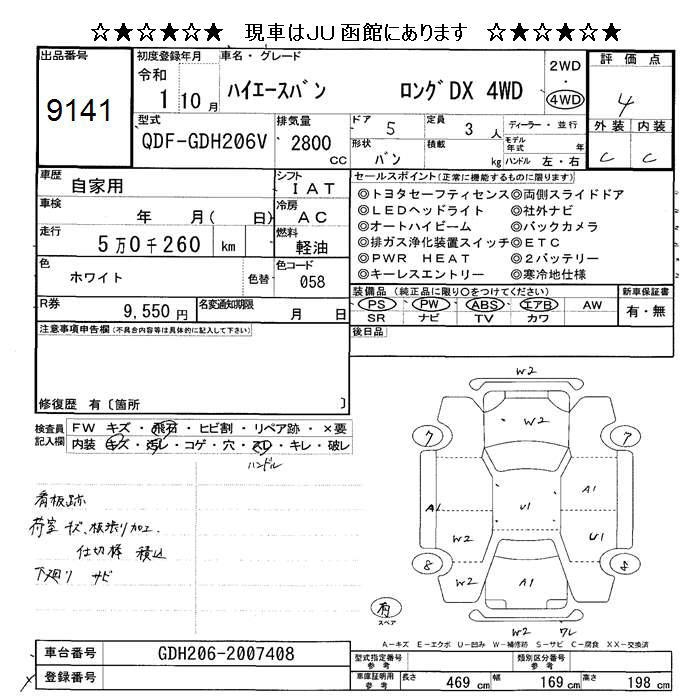 ☆★☆★☆★ 現車はJU函館にあります ☆★☆★☆★
出品番号
9141
初度登録年月
令和
1 10月
車名・グレード
ハイエースバン ロングDX 4WD
2WD
・
4WD
評価点
4
外装 内装
C C
型式
QDF-GDH206V
排気量
2800
cc
ドア 5
定員 3 人
形状 バン
積載 kg
ディーラー・並行
モデル年式 年
ハンドル 左・右
車歴
自家用
シフト
IAT
車検
年 月( 日)
冷房
AC
走行
5万0千260 km
燃料
軽油
色
ホワイト
色替
色コード
058
R券
9,550円
名変通知期限
月 日
セールスポイント(正常に機能するものに限ります)
◎トヨタセーフティセンス◎両側スライドドア
◎LEDヘッドライト ◎社外ナビ
◎オートハイビーム ◎バックカメラ
◎排ガス浄化装置スイッチ◎ETC
◎PWR HEAT ◎2バッテリー
◎キーレスエントリー ◎寒冷地仕様
装備品(純正品に限り○をつけてください)
PS PW ABS エアB AW
SR ナビ TV カワ
新車保証書
有・無
後日品
注意事項申告欄(不具合内容等は具体的に記入して下さい)
修復歴 有〔箇所 〕
検査員記入欄
FW キズ・飛石・ヒビ割・リペア跡・×要
内装 キズ・汚レ・コゲ・穴・スレ・キレ・破レ
ハンドル
看板跡
荷室 キズ、板張り加工.
仕切棒 積込
下廻り サビ
W2
W2
7
7
A1
A1
U1
W2
U1
8
8
W2
A1
W2 ワレ
有
スペア
A-キズ E-エクボ U-凹み W-補修跡 S-サビ C-腐食 XX-交換済
車台番号
GDH206-2007408
登録番号
型式指定番号
参考
類別区分番号
参考
車庫証明用
参考
長さ 469 cm 幅 169 cm 高さ 198 cm